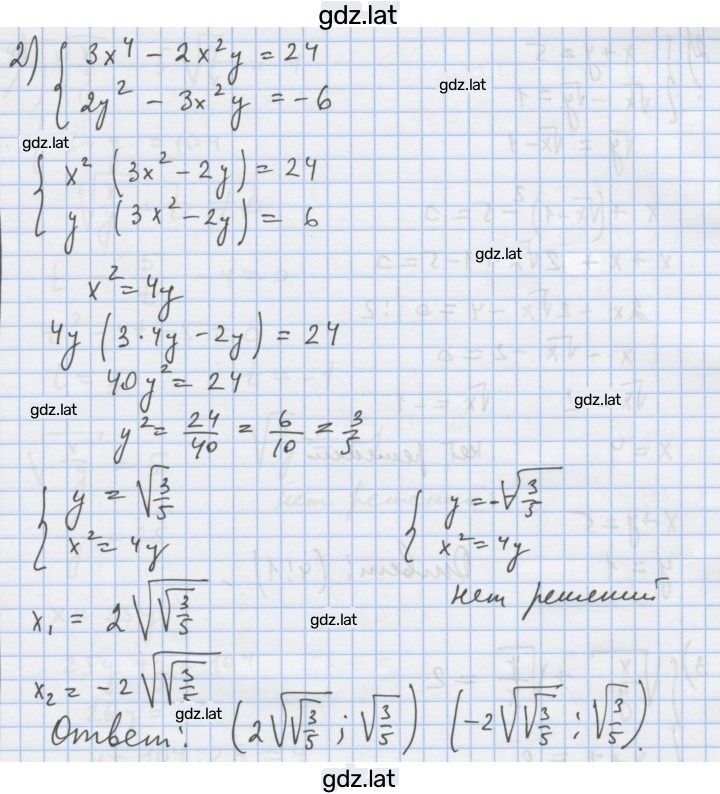 gdz.lat
2) { 3x⁴ - 2x²y = 24
2y² - 3x²y = -6
gdz.lat
gdz.lat
{ x² (3x² - 2y) = 24
y (3x² - 2y) = 6
gdz.lat
x² = 4y
4y (3·4y - 2y) = 24
40y² = 24
gdz.lat
gdz.lat
y² = 24/40 = 6/10 = 3/5
{ y = √(3/5) { y = -√(3/5)
x² = 4y x² = 4y
нет решений
x₁ = 2√√(3/5)
gdz.lat
x₂ = -2√√(3/5)
gdz.lat
Ответ: (2√√(3/5); √(3/5)) (-2√√(3/5); √(3/5)).
gdz.lat